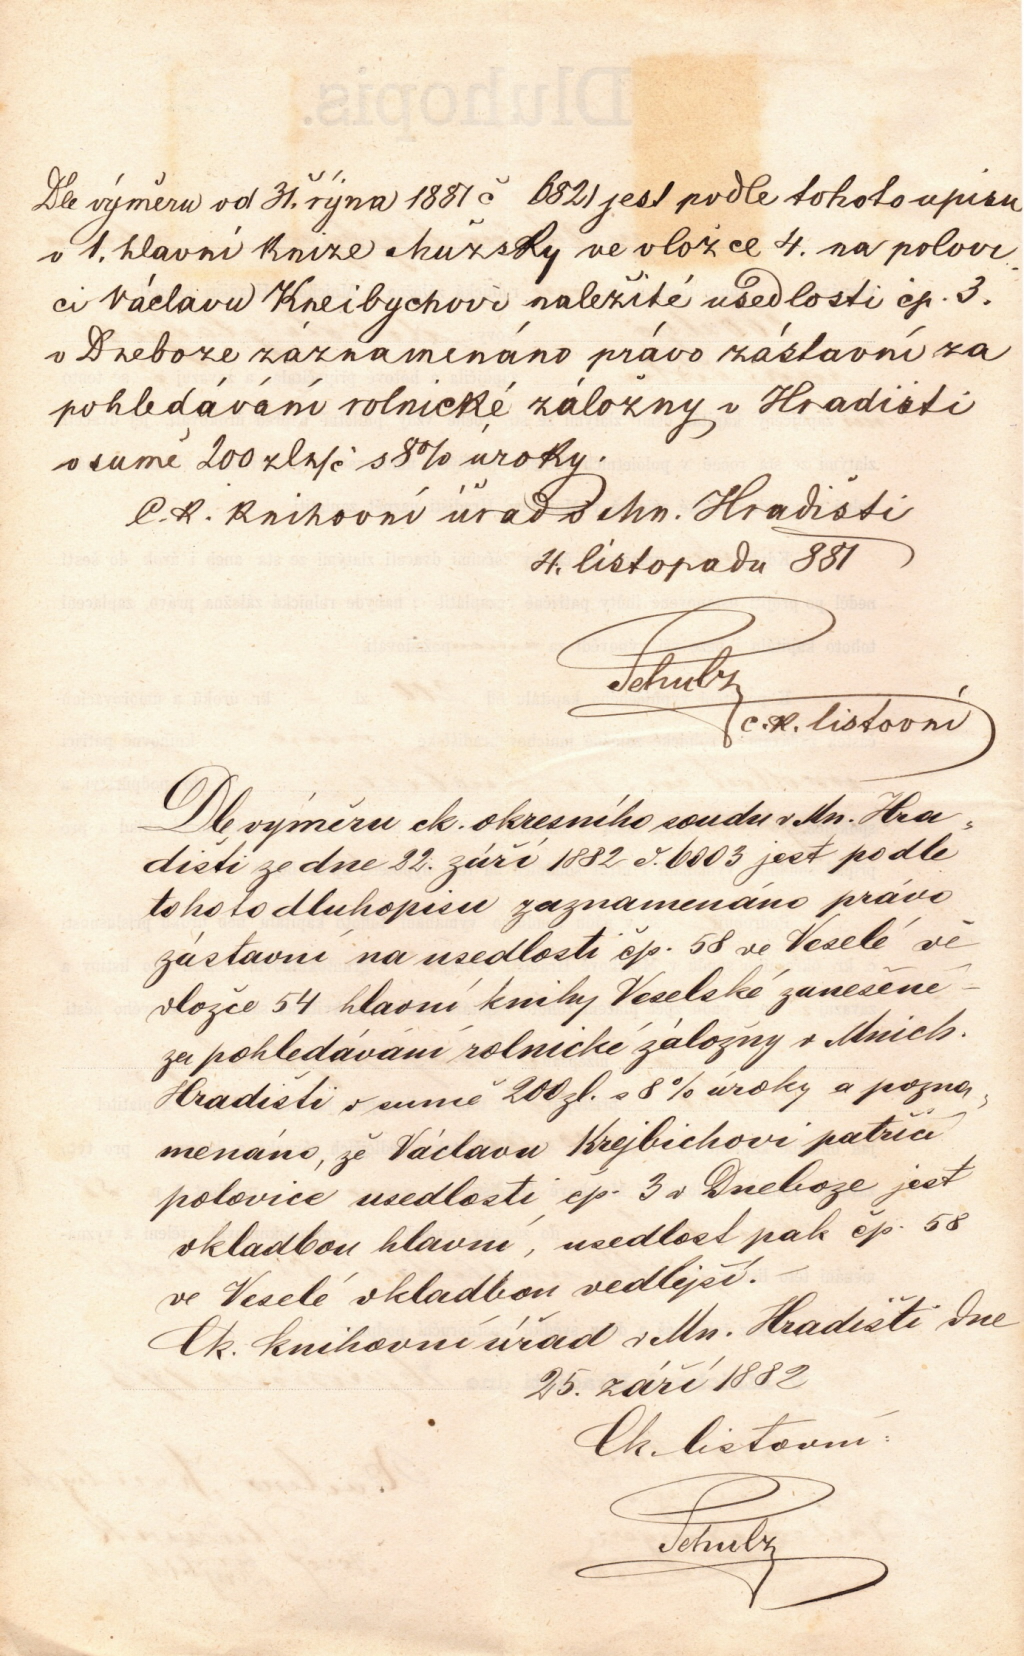 Dluhopis.
Dle výměru od 31. října 1881 č 6821 jest podle tohoto upisu
v 1. hlavní knize Mužský ve vložce 4. na polovi-
ci Václavu Kneibychovi naležité usedlosti čp. 3.
v Dneboze záznamenáno právo zástavní za
pohledávání rolnické záložny v Hradišti
v sumě 200 zl r/č s 8% úroky.
C. k. knihovní úřad v Mn. Hradišti
4. listopadu 881
Schulz
c. k. listovní
Dle výměru ck. okresního soudu v Mn. Hra-
dišti ze dne 22. září 1882 č. 6003 jest podle
tohoto dluhopisu zaznamenáno právo
zástavní na usedlosti čp. 58 ve Veselé ve
vložce 54 hlavní knihy Veselské zanešené –
za pohledávání rolnické záložny v Mnich.
Hradišti v sumě 200 zl. s 8% úroky a pozna-
menáno, že Václavu Krejbichovi patřící
polovice usedlosti čp. 3 v Dneboze jest
vkladbou hlavní, usedlost pak čp. 58
ve Veselé vkladbou vedlejší. –
Ck. knihovní úřad v Mn. Hradišti dne
25. září 1882
Ck. listovní:
Schulz